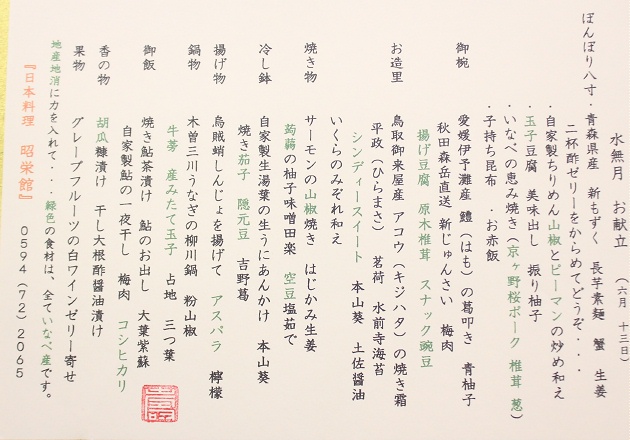 水無月 お献立 (六月 十三日)
ぼんぼり八寸・青森県産 新もずく 長芋素麺 蟹 生姜
二杯酢ゼリーをからめてどうぞ・・・
・自家製ちりめん山椒とピーマンの炒め和え
・玉子豆腐 美味出し 振り柚子
・いなべの恵み焼き(京ヶ野桜ポーク 椎茸 葱)
・子持ち昆布 ・お赤飯
御椀 愛媛伊予灘産 鱧(はも)の葛叩き 青柚子
秋田森岳直送 新じゅんさい 梅肉
揚げ豆腐 原木椎茸 スナック豌豆
お造里 鳥取御来屋産 アコウ(キジハタ)の焼き霜
平政(ひらまさ) 茗荷 水前寺海苔
シンディースイート 本山葵 土佐醤油
いくらのみぞれ和え
焼き物 サーモンの山椒焼き はじかみ生姜
蒟蒻の柚子味噌田楽 空豆塩茹で
冷し鉢 自家製生湯葉の生うにあんかけ 本山葵
焼き茄子 隠元豆 吉野葛
揚げ物 烏賊蛸しんじょを揚げて アスパラ 檸檬
鍋物 木曽三川うなぎの柳川鍋 粉山椒
牛蒡 産みたて玉子 占地 三つ葉
御飯 焼き鮎茶漬け 鮎のお出し 大葉紫蘇
自家製鮎の一夜干し 梅肉 コシヒカリ
香の物 胡瓜糠漬け 干し大根酢醤油漬け
果物 グレープフルーツの白ワインゼリー寄せ
地産地消に力を入れて・・・緑色の食材は、全ていなべ産です。
『日本料理 昭栄館』 0594(72)2065